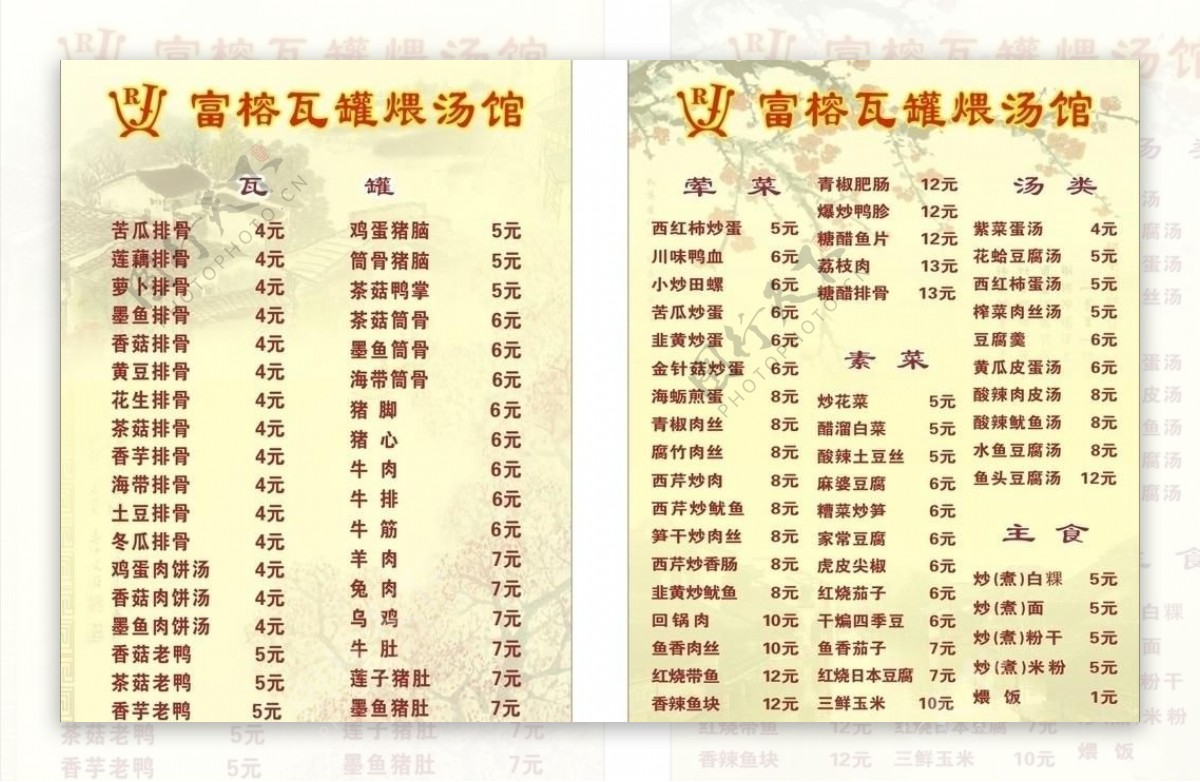 RJ 富榕瓦罐煨汤馆
瓦 罐
苦瓜排骨 4元
莲藕排骨 4元
萝卜排骨 4元
墨鱼排骨 4元
香菇排骨 4元
黄豆排骨 4元
花生排骨 4元
茶菇排骨 4元
香芋排骨 4元
海带排骨 4元
土豆排骨 4元
冬瓜排骨 4元
鸡蛋肉饼汤 4元
香菇肉饼汤 4元
墨鱼肉饼汤 4元
香菇老鸭 5元
茶菇老鸭 5元
香芋老鸭 5元
鸡蛋猪脑 5元
筒骨猪脑 5元
茶菇鸭掌 5元
茶菇筒骨 6元
墨鱼筒骨 6元
海带筒骨 6元
猪 脚 6元
猪 心 6元
牛 肉 6元
牛 排 6元
牛 筋 6元
羊 肉 7元
兔 肉 7元
乌 鸡 7元
牛 肚 7元
莲子猪肚 7元
墨鱼猪肚 7元
RJ 富榕瓦罐煨汤馆
荤 菜
西红柿炒蛋 5元
川味鸭血 6元
小炒田螺 6元
苦瓜炒蛋 6元
韭黄炒蛋 6元
金针菇炒蛋 6元
海蛎煎蛋 8元
青椒肉丝 8元
腐竹肉丝 8元
西芹炒肉 8元
西芹炒鱿鱼 8元
笋干炒肉丝 8元
西芹炒香肠 8元
韭黄炒鱿鱼 8元
回锅肉 10元
鱼香肉丝 10元
红烧带鱼 12元
香辣鱼块 12元
青椒肥肠 12元
爆炒鸭胗 12元
糖醋鱼片 12元
荔枝肉 13元
糖醋排骨 13元
素 菜
炒花菜 5元
醋溜白菜 5元
酸辣土豆丝 5元
麻婆豆腐 6元
糟菜炒笋 6元
家常豆腐 6元
虎皮尖椒 6元
红烧茄子 6元
干煸四季豆 6元
鱼香茄子 7元
红烧日本豆腐 7元
三鲜玉米 10元
汤 类
紫菜蛋汤 4元
花蛤豆腐汤 5元
西红柿蛋汤 5元
榨菜肉丝汤 5元
豆腐羹 6元
黄瓜皮蛋汤 6元
酸辣肉皮汤 8元
酸辣鱿鱼汤 8元
水鱼豆腐汤 8元
鱼头豆腐汤 12元
主 食
炒(煮)白粿 5元
炒(煮)面 5元
炒(煮)粉干 5元
炒(煮)米粉 5元
煨 饭 1元
图行天下
PHOTOPHOTO.CN